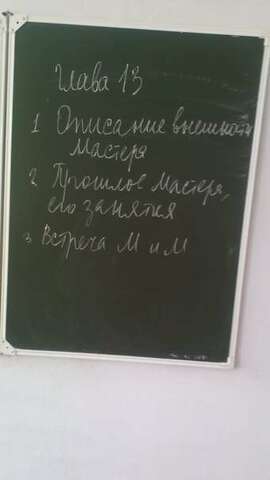 Глава 13
1 Описание внешности
Мастера
2 Прошлое Мастера,
его занятия
3 Встреча М и М